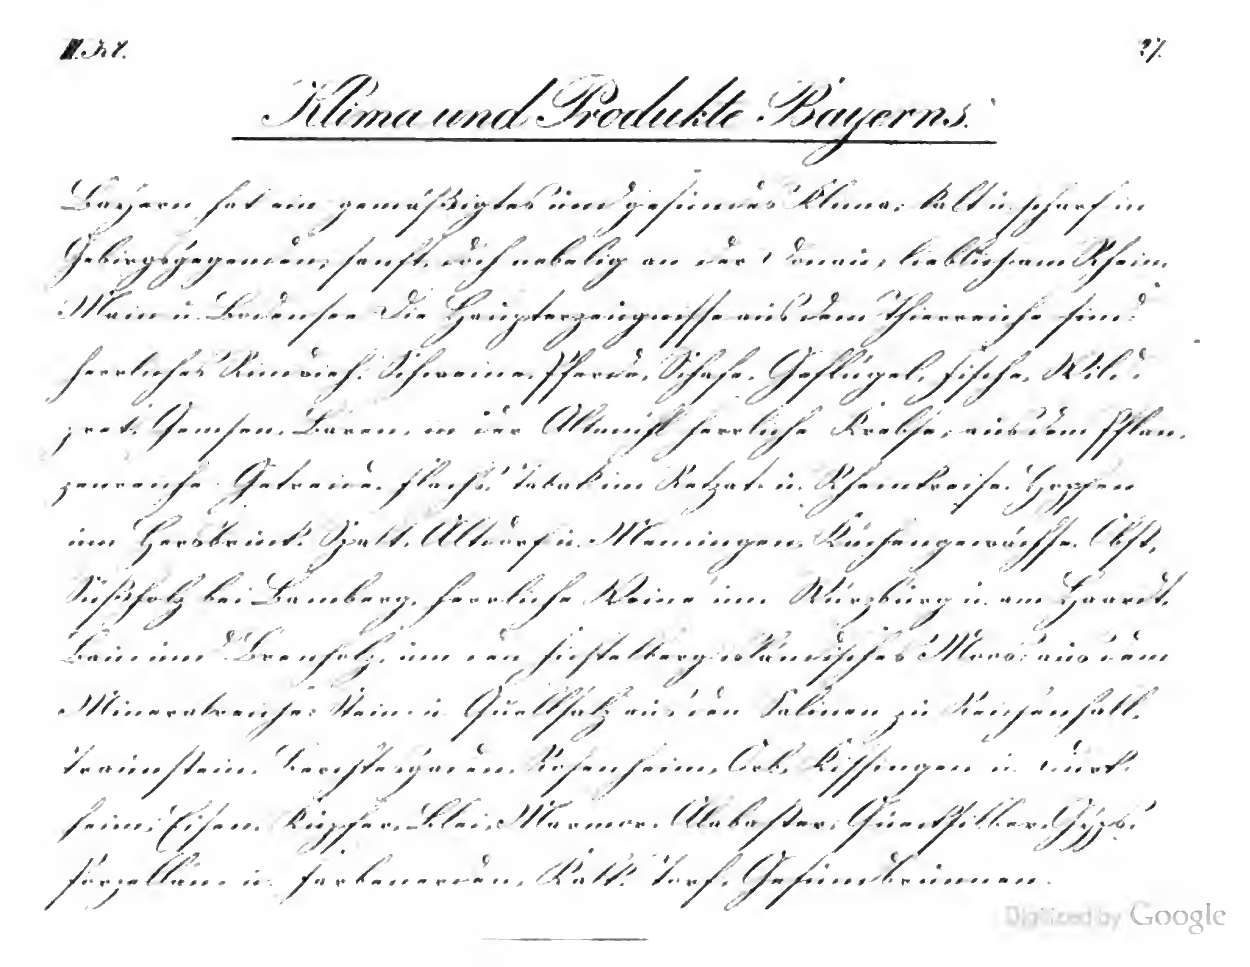 27.
Klima und Produkte Bayerns.
Bayern hat ein gemäßigtes und gesundes Klima, kalt u. scharf in
Gebirgsgegenden, sanft, doch nebelig an der Donau, lieblich am Rhein,
Main u. Bodensee. Die Haupterzeugnisse aus dem Thierreiche sind:
herrliches Rindvieh, Schweine, Pferde, Schafe, Geflügel, Fische, Wild-
pret, Gemsen, Bären, in der Altmühl herrliche Krebse, aus dem Pflan-
zenreiche: Getreide, Flachs, Tabak im Rezat- u. Rheinkreise, Hopfen
um Hersbruck, Spalt, Altdorf u. Memingen, Küchengewächse, Obst,
Süßholz bei Bamberg, herrliche Weine um Würzburg u. am Haardt,
Bau- und Brenholz, um den Fichtelberg isländisches Moos; aus dem
Mineralreiche: Stein- u. Quellsalz aus den Salinen zu Reichenhall,
Traunstein, Berchtesgaden, Rosenheim, Orb, Kissingen u. Dürk-
heim, Eisen, Kupfer, Blei, Marmor, Alabaster, Quecksilber, Gyps,
Porzellan- u. Farbenerden, Kalk, Torf, Gesundbrunnen.
Digitized by Google